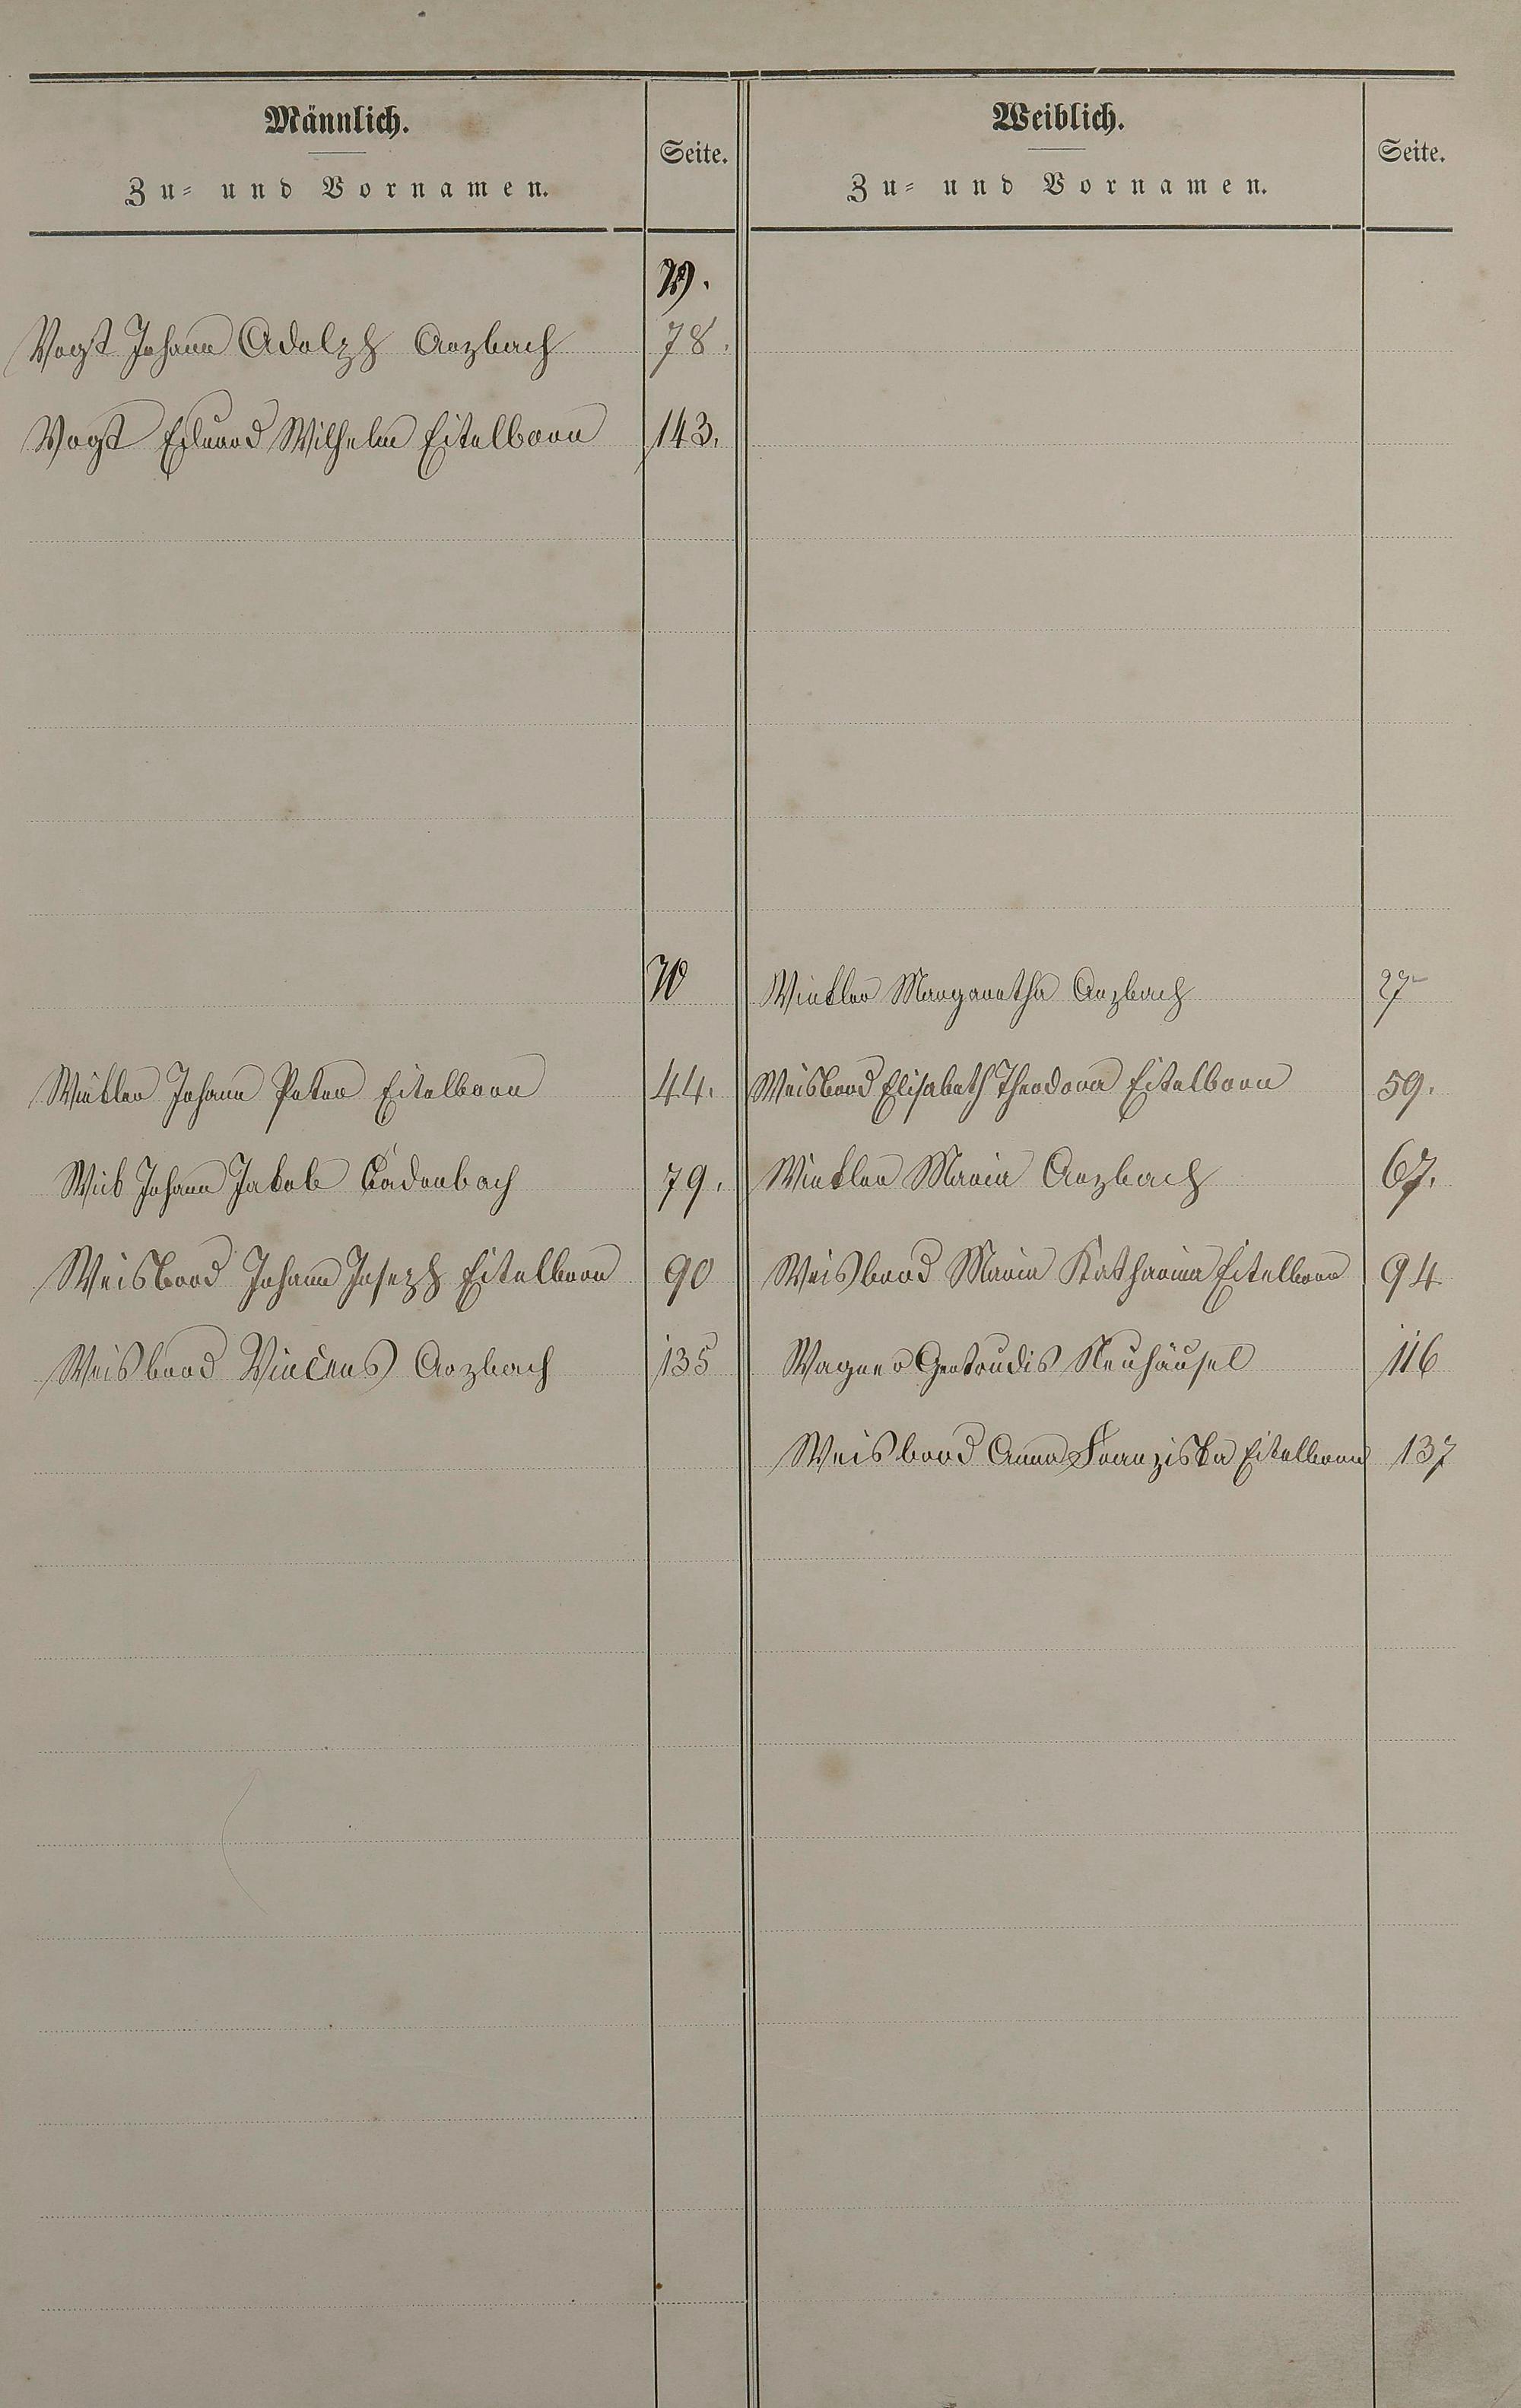 Männlich.
Zu- und Vornamen.
Seite.
Weiblich.
Zu- und Vornamen.
Seite.
V.
Vogt Johann Adolph Arzbach 78.
Vogt Eduard Wilhelm Eitelborn 143.
W Winkler Margaretha Arzbach 27
Winkler Johann Peter Eitelborn 44. Weisbrod Elisabeth Theodora Eitelborn 59.
Johann Jakob Cadenbach 79. Winkler Maria Arzbach 67.
Weisbrod Johann Joseph Eitelborn 90 Weisbrod Maria Katharina Eitelborn 94
Weisbrod Vincens Arzbach 135 Wagner Gertrudis Neuhäusel 116
Weisbrod Anna Franziska Eitelborn 137